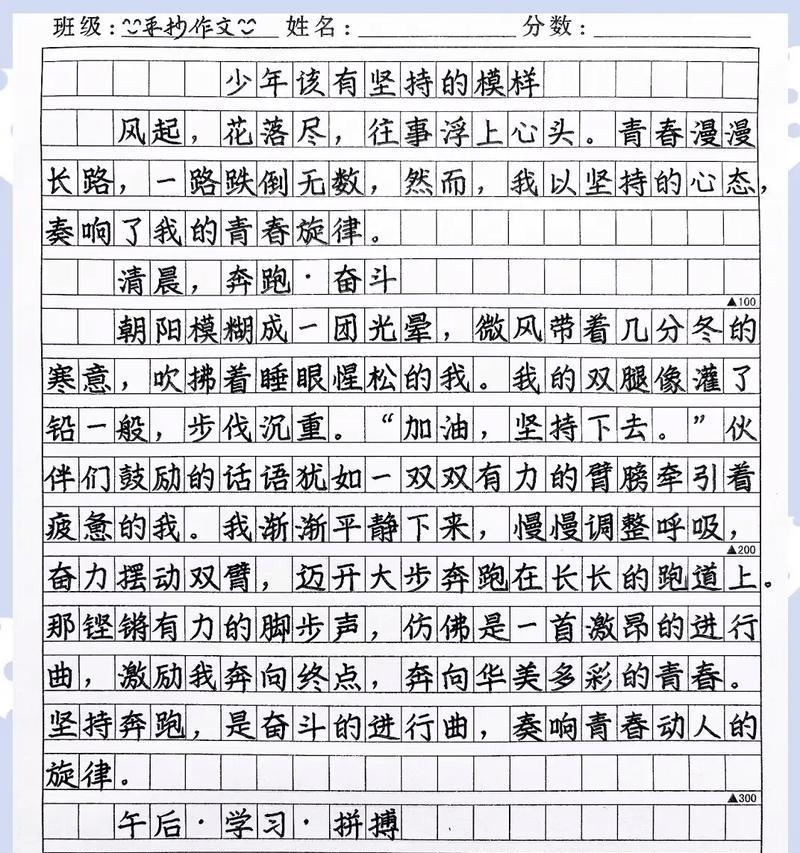 班级:手抄作文 姓名: 分数:
少年该有坚持的模样
风起，花落尽，往事浮上心头。青春漫漫
长路，一路跌倒无数，然而，我以坚持的心态，
奏响了我的青春旋律。
清晨，奔跑·奋斗
▲100
朝阳模糊成一团光晕，微风带着几分冬的
寒意，吹拂着睡眼惺松的我。我的双腿像灌了
铅一般，步伐沉重。“加油，坚持下去。”伙
伴们鼓励的话语犹如一双双有力的臂膀牵引着
疲惫的我。我渐渐平静下来，慢慢调整呼吸，
▲200
奋力摆动双臂，迈开大步奔跑在长长的跑道上。
那铿锵有力的脚步声，仿佛是一首激昂的进行
曲，激励我奔向终点，奔向华美多彩的青春。
坚持奔跑，是奋斗的进行曲，奏响青春动人的
旋律。
▲300
午后·学习·拼搏